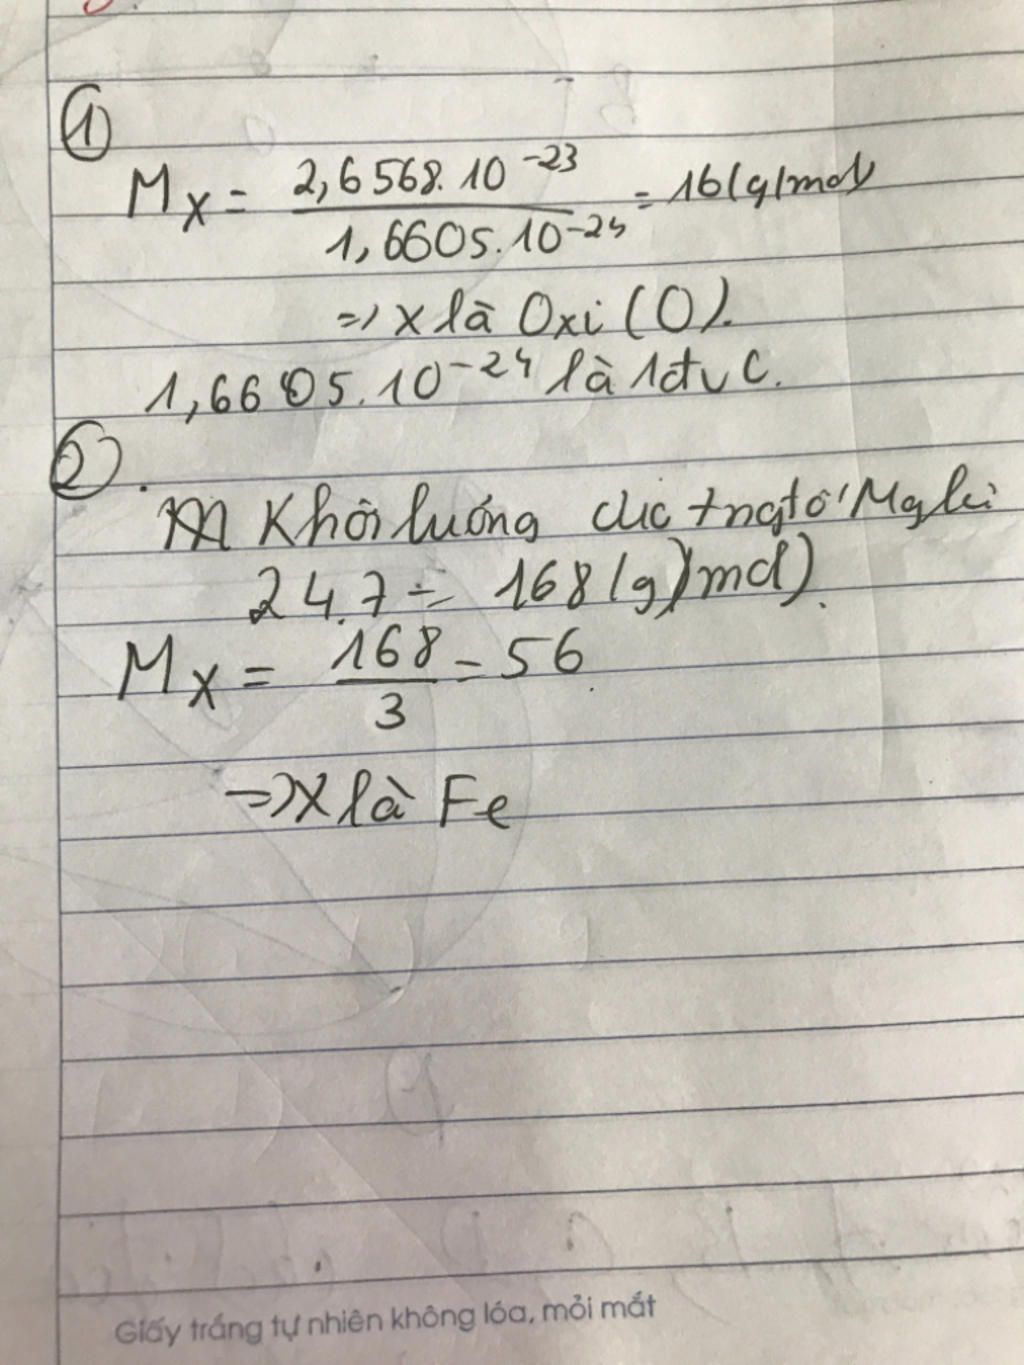 ①
Mx = 2,6568.10⁻²³ / 1,6605.10⁻²⁴ = 16(g/mol)
=> X là Oxi (O).
1,6605.10⁻²⁴ là 1đvC.
②.
Khối lượng của 7 ngtố Mg là
24.7 = 168 (g/mol).
Mx = 168 / 3 = 56
=> X là Fe
Giấy trắng tự nhiên không lóa, mỏi mắt